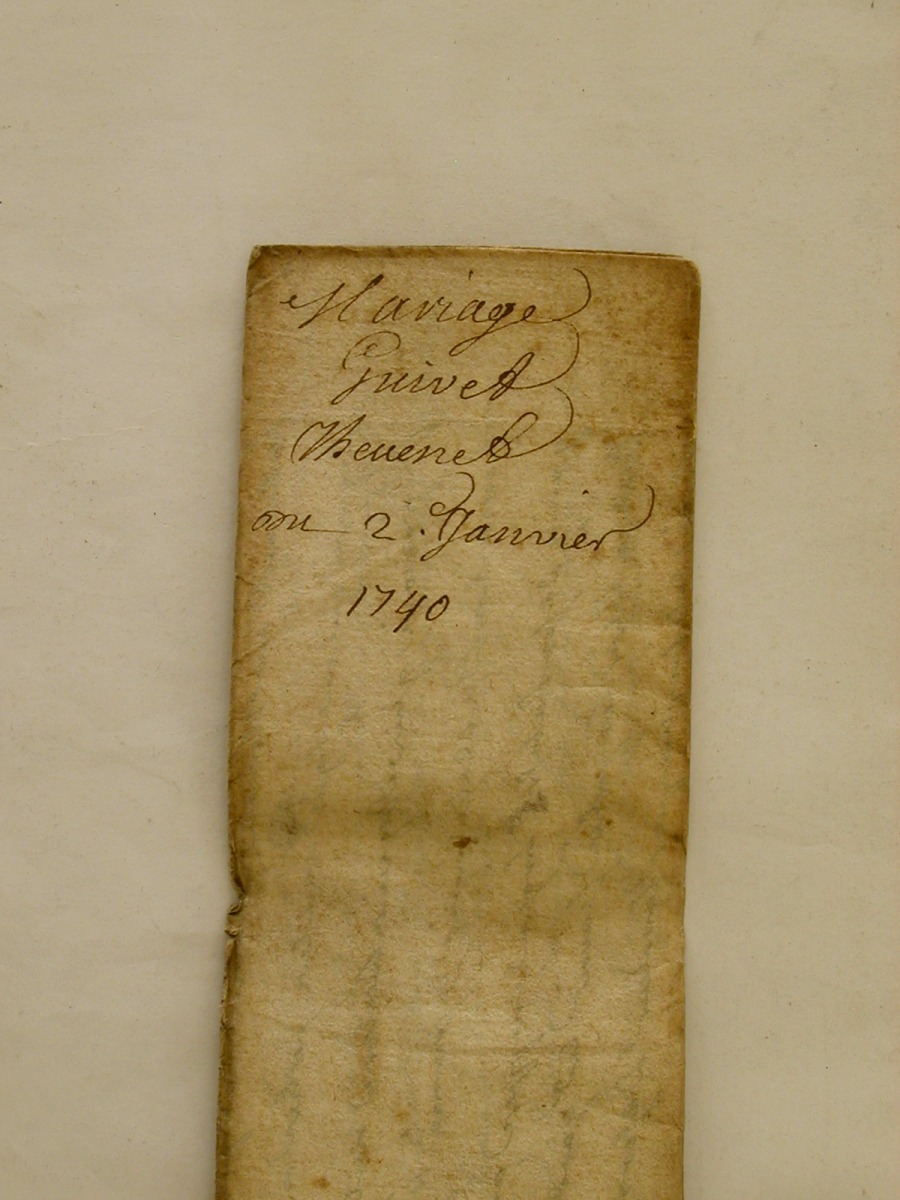 Mariage
Guivet
Thevenet
du 2. Janvier
1740